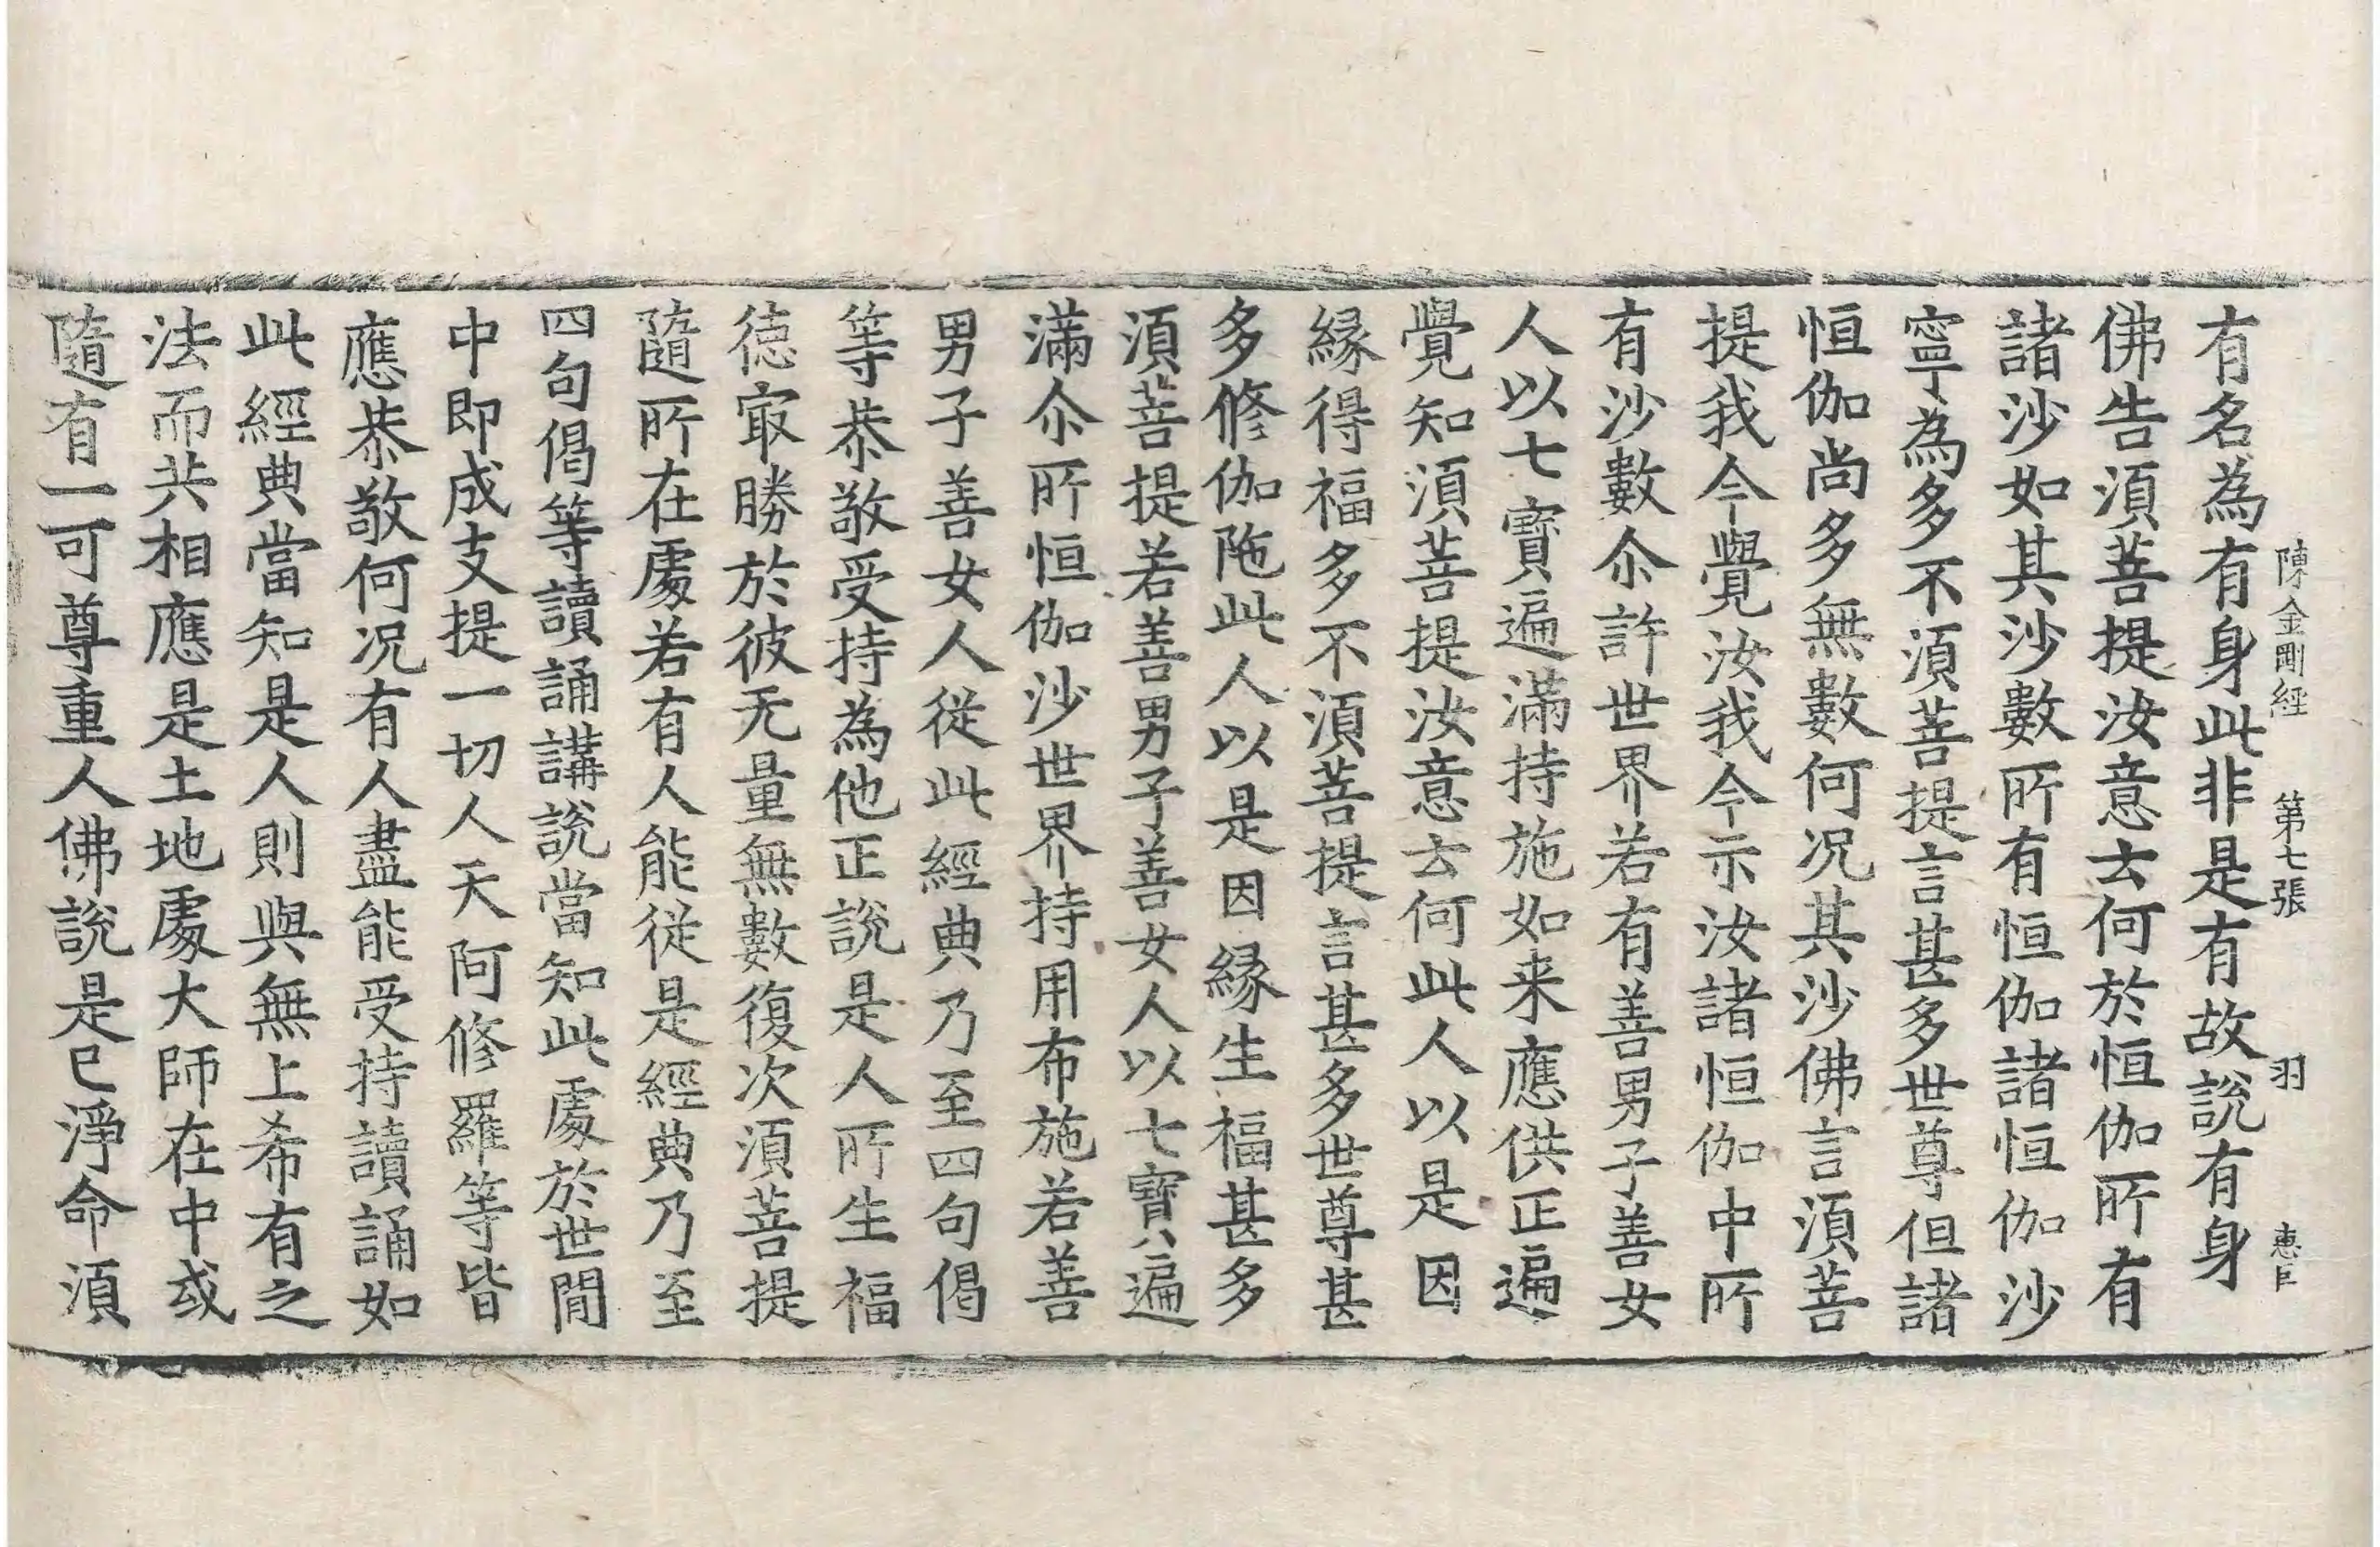 陳金剛經 第七張 羽 惠巨
有名為有身此非是有故說有身
佛告湏菩提汝意云何於恒伽所有
諸沙如其沙數所有恒伽諸恒伽沙
寧為多不湏菩提言甚多世尊但諸
恒伽尚多無數何况其沙佛言湏菩
提我今覺汝我今示汝諸恒伽中所
有沙數尒許世界若有善男子善女
人以七寶遍滿持施如来應供正遍
覺知湏菩提汝意云何此人以是因
縁得福多不湏菩提言甚多世尊甚
多修伽陁此人以是因縁生福甚多
湏菩提若善男子善女人以七寶遍
滿尒所恒伽沙世界持用布施若善
男子善女人從此經典乃至四句偈
等恭敬受持為他正說是人所生福
徳冣勝於彼无量無數復次湏菩提
隨所在處若有人能從是經典乃至
四句偈等讀誦講說當知此處於世間
中即成支提一切人天阿修羅等皆
應恭敬何况有人盡能受持讀誦如
此經典當知是人則與無上希有之
法而共相應是土地處大師在中或
隨有一可尊重人佛說是已淨命湏